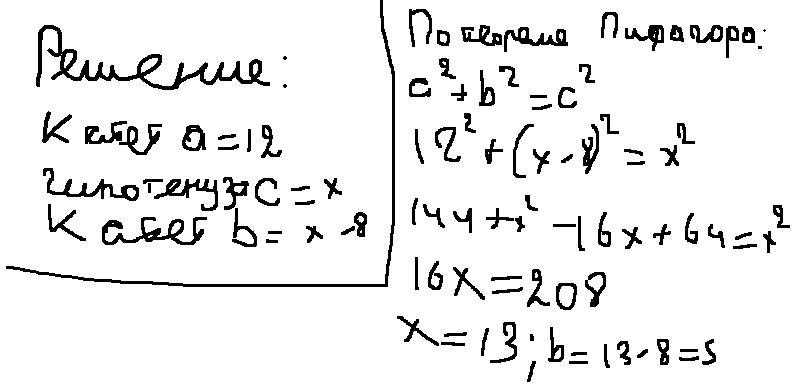 Решение:
Катет a=12
гипотенуза c=x
Катет b=x-8
По теореме Пифагора:
a²+b²=c²
12²+(x-8)²=x²
144+x²-16x+64=x²
16x=208
x=13; b=13-8=5